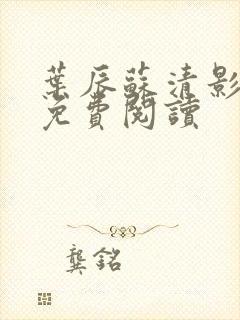 葉辰蘇清影
免費閱讀
龔銘